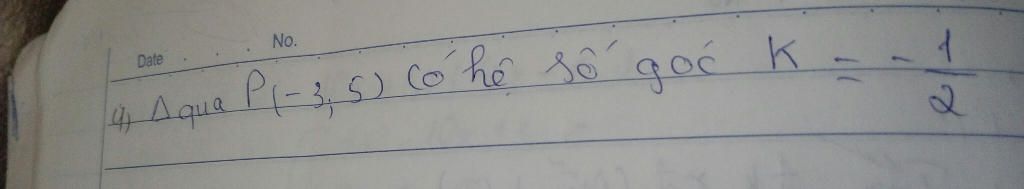 Date . . . No.
4, Δ qua P(-3, 5) có hệ số góc K = -1/2